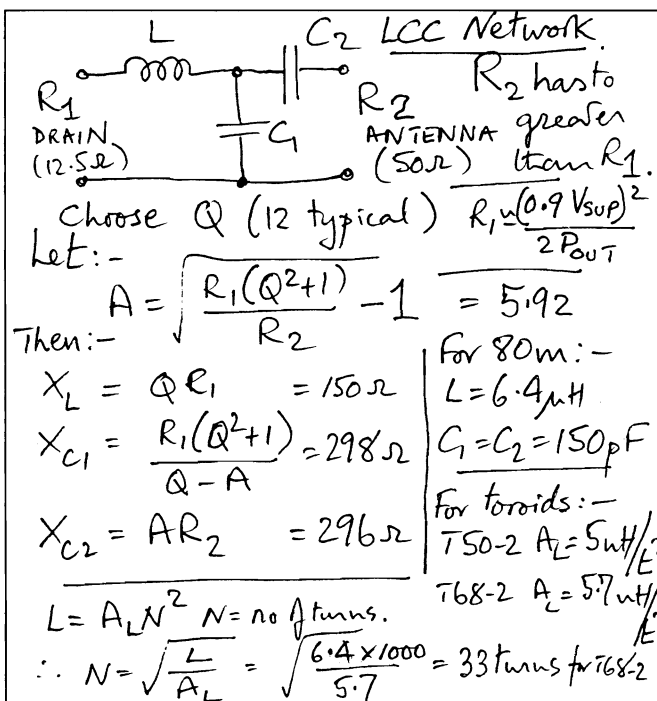 L
C2
LCC Network.
R2 has to
greater
than R1.
R1
DRAIN
(12.5Ω)
C1
R2
ANTENNA
(50Ω)
Choose Q (12 typical)
R1 ≃ (0.9 VSUP)² / 2 POUT
Let:-
A = √(R1(Q²+1) / R2 - 1) = 5.92
Then:-
XL = QR1 = 150Ω
XC1 = R1(Q²+1) / (Q-A) = 298Ω
XC2 = AR2 = 296Ω
For 80m:-
L = 6.4μH
C1 = C2 = 150pF
For toroids:-
T50-2 AL = 5nH/t²
T68-2 AL = 5.7nH/t²
L = ALN² N = no of turns.
∴ N = √(L / AL) = √(6.4 × 1000 / 5.7) = 33 turns for T68-2